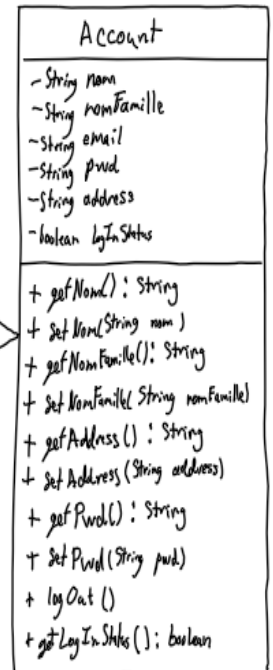 Account
-String nom
-String nomFamille
-String email
-String pwd
-String address
-boolean logInStatus
+ getNom(): String
+ setNom(String nom)
+ getNomFamille(): String
+ setNomFamille(String nomFamille)
+ getAddress(): String
+ setAddress(String address)
+ getPwd(): String
+ setPwd(String pwd)
+ logOut()
+ getLogInStatus(): boolean